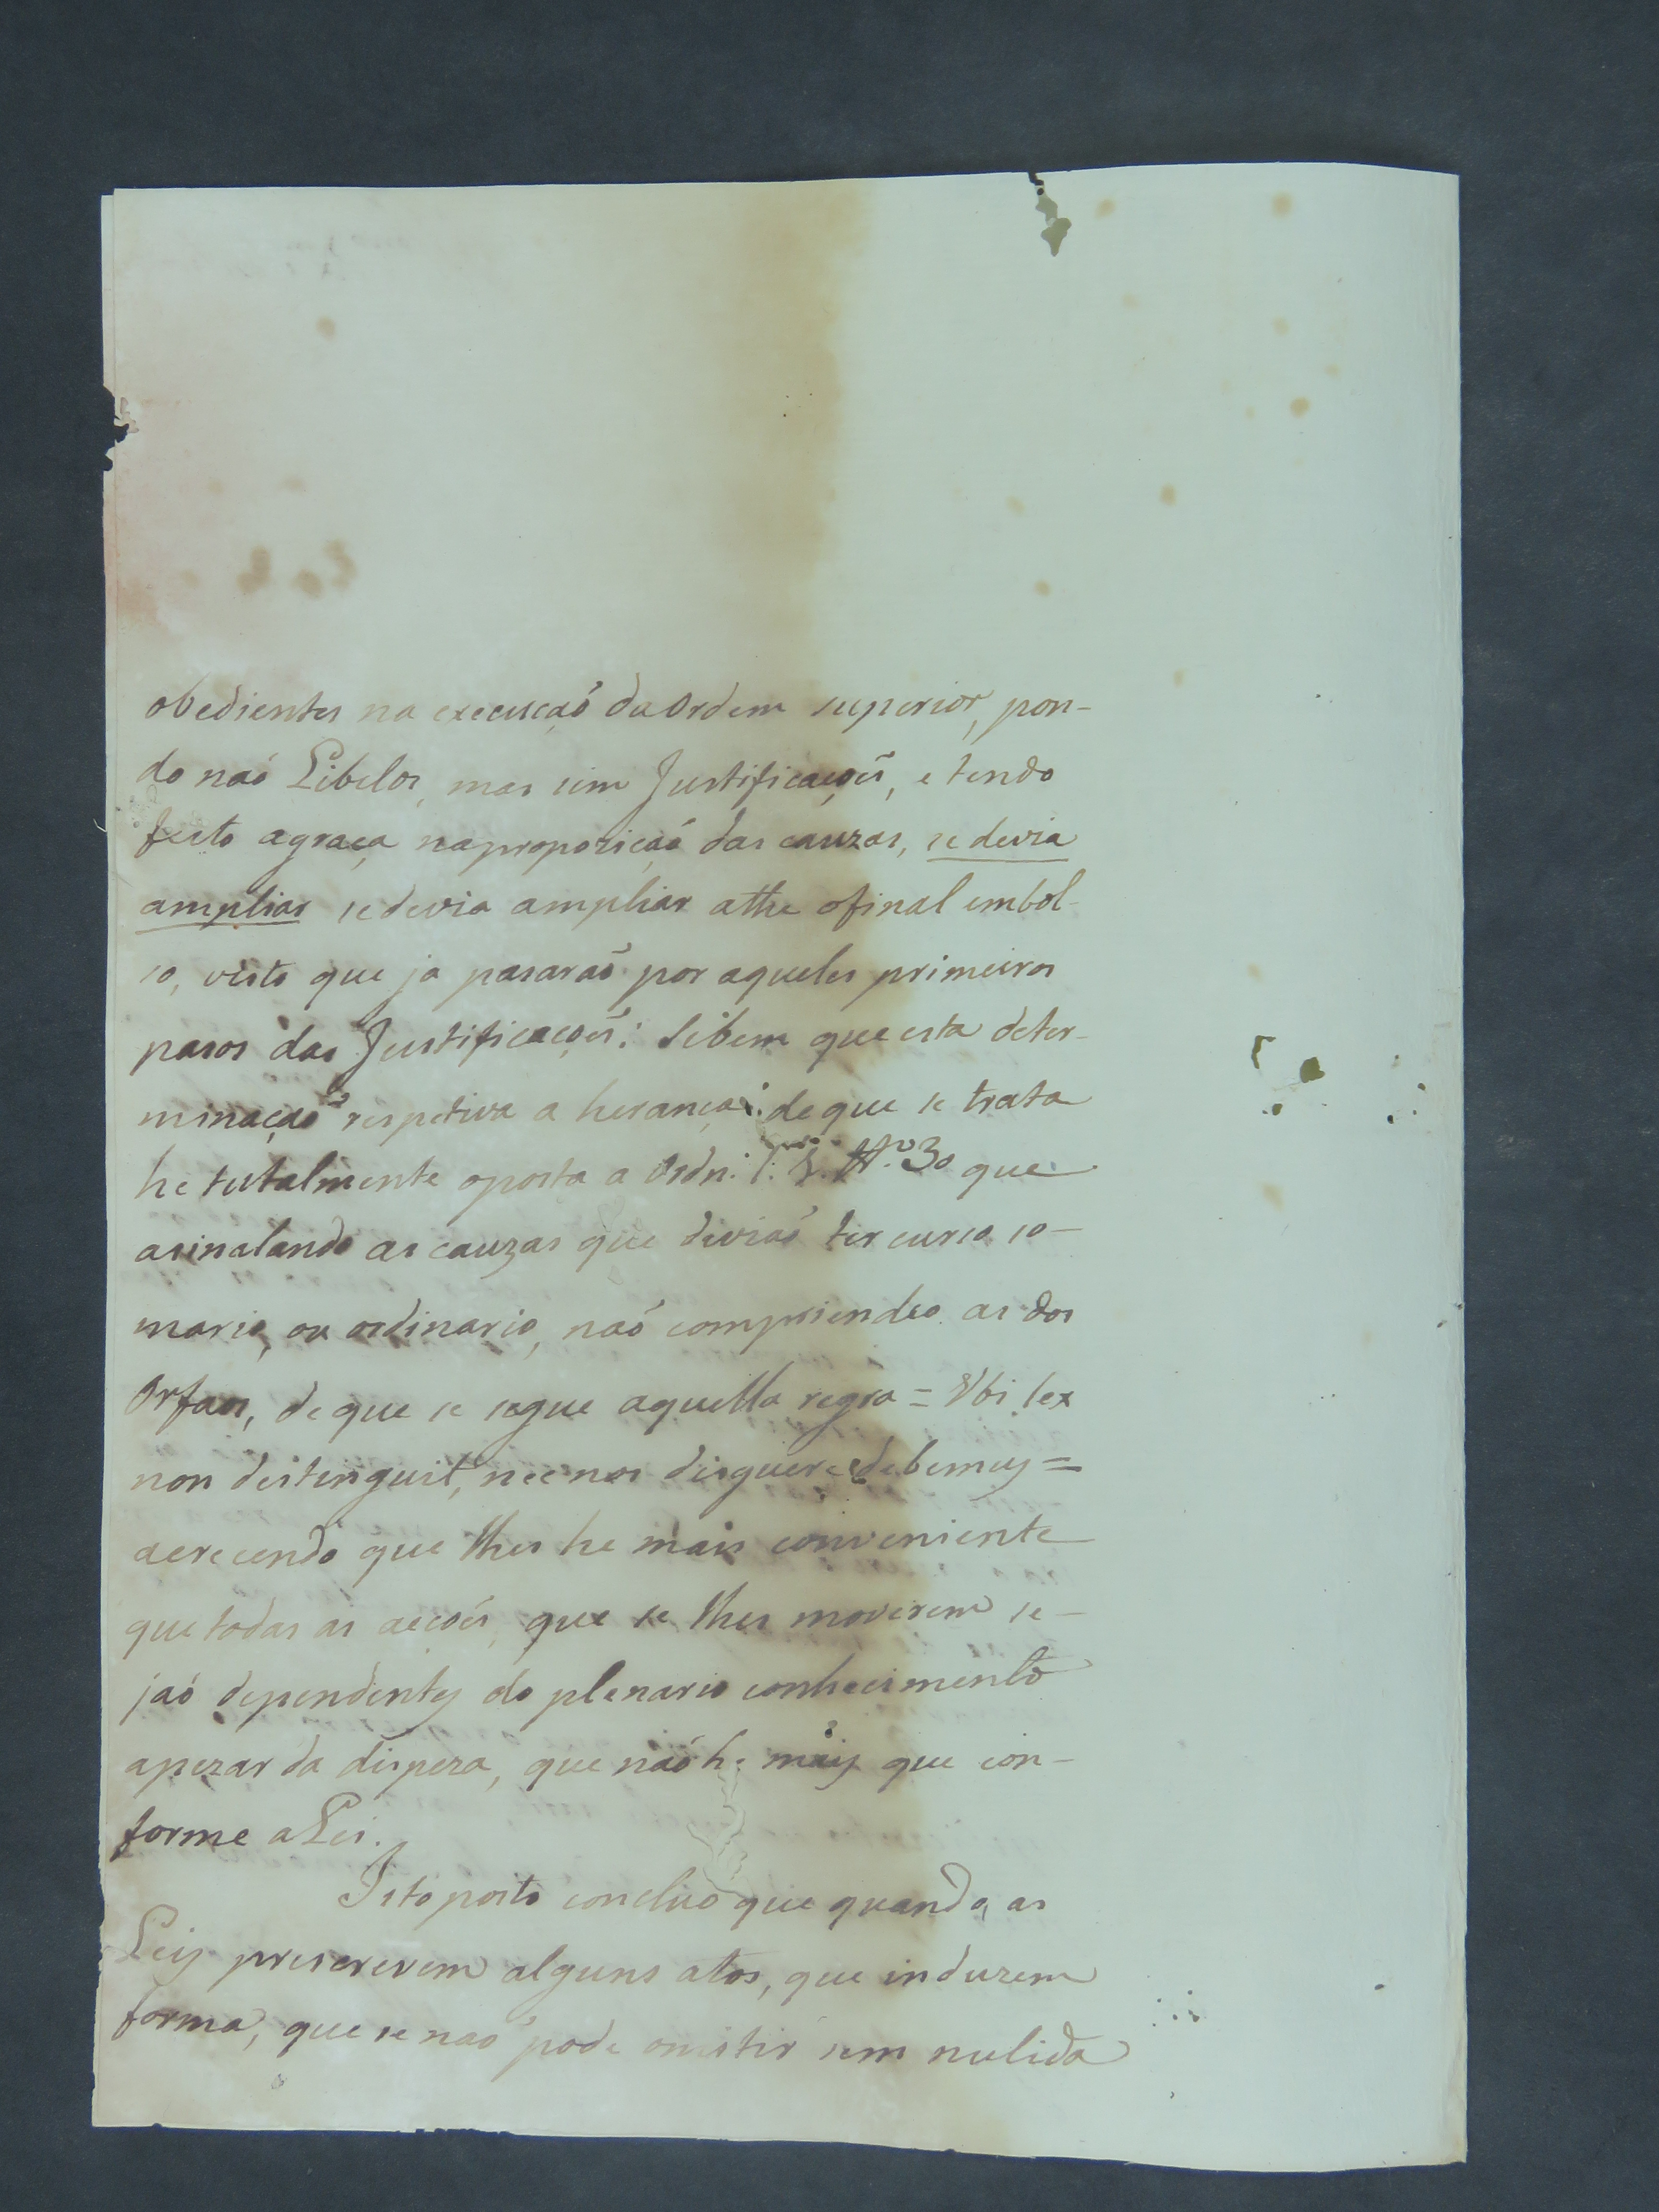 obedientes na execuçaõ da Ordem superior, pon-
do naó Libelos, mas sim Justificaçoẽs, e tendo
feito a graça na propozicaó das cauzas, se devia
ampliar se devia ampliar athe o final embol-
so, visto que ja pasaraõ por aqueles primeiros
pasos das Justificaçoẽs: Sebem que esta deter-
minaçaõ respetiva a herança de que se trata
he tutalmente oposta a Ordn: l: 3. tt.º 30 que
asinalando as cauzas que deviaó ter curso so-
mario, ou ordinario, naó compriendeo as dos
Orfaos, de que se segue aquella regra = Ubi lex
non destinguit, nec nos disguere debemus =
acrecendo que lhes he mais conveniente
que todas as acçoẽs, que se lhes moverem se-
jaó dependentes do plenario conhecimento
apezar da dispeza, que naó he mais que con-
forme a Lei.
Isto posto concluo que quando as
Leis prescrevem alguns atos, que induzem
forma, que se naó pode omitir sem nulida